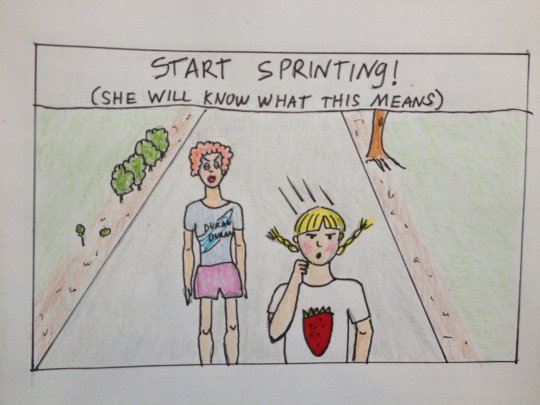 START SPRINTING!
(SHE WILL KNOW WHAT THIS MEANS)
DURAN
DURAN